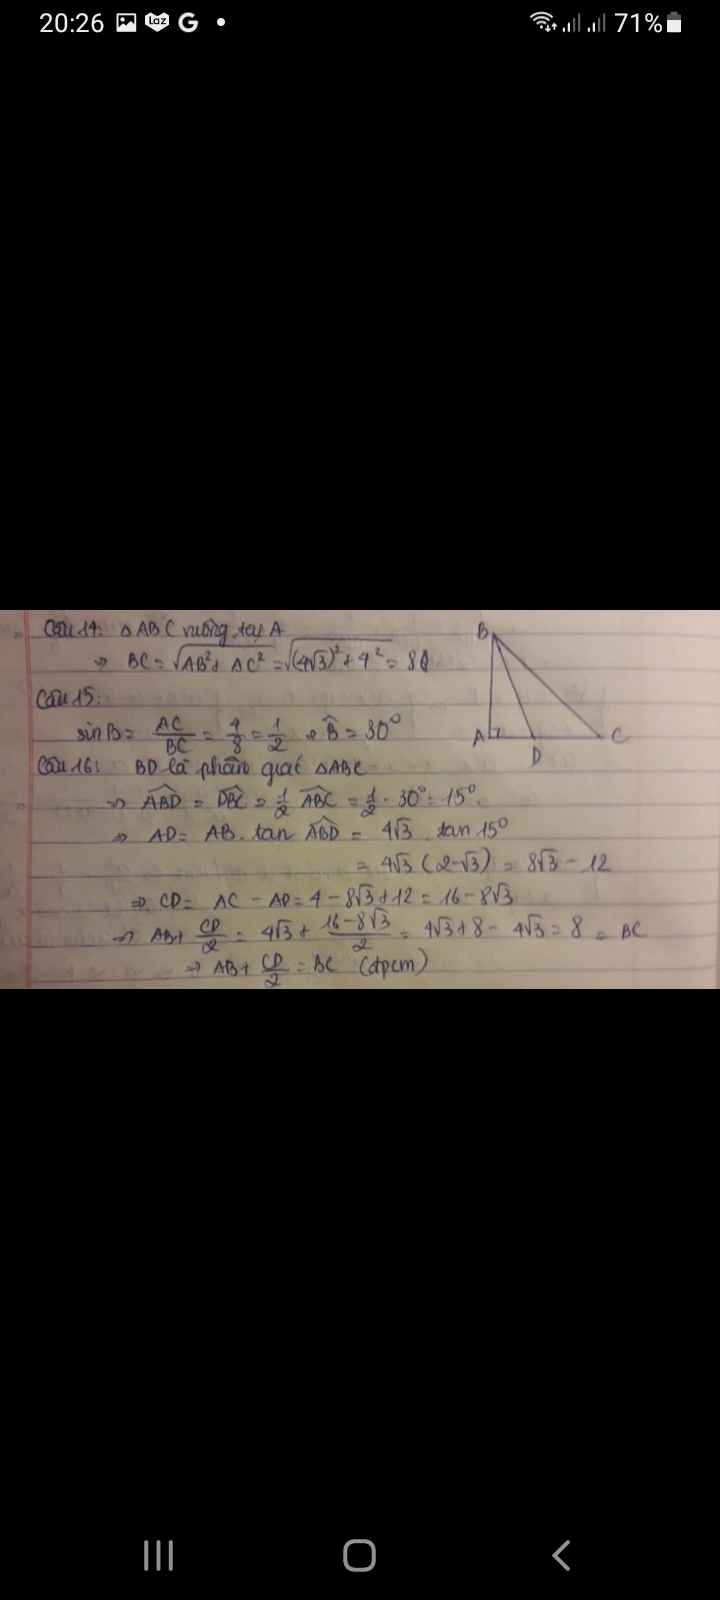 20:26 laz G 71%
Câu 14: △ABC vuông tại A
⇒ BC = √(AB² + AC²) = √((4√3)² + 4²) = 8
Câu 15:
sin B = AC/BC = 4/8 = 1/2 ⇒ B̂ = 30°
Câu 16: BD là phân giác △ABC
⇒ ABD̂ = DBĈ = 1/2 ABĈ = 1/2 · 30° = 15°
⇒ AD = AB . tan ABD̂ = 4√3 . tan 15°
= 4√3 (2-√3) = 8√3 - 12
⇒ CD = AC - AD = 4 - 8√3 + 12 = 16 - 8√3
⇒ AB + CD/2 = 4√3 + (16 - 8√3)/2 = 4√3 + 8 - 4√3 = 8 = BC
⇒ AB + CD/2 = BC (đpcm)
B
A
D
C